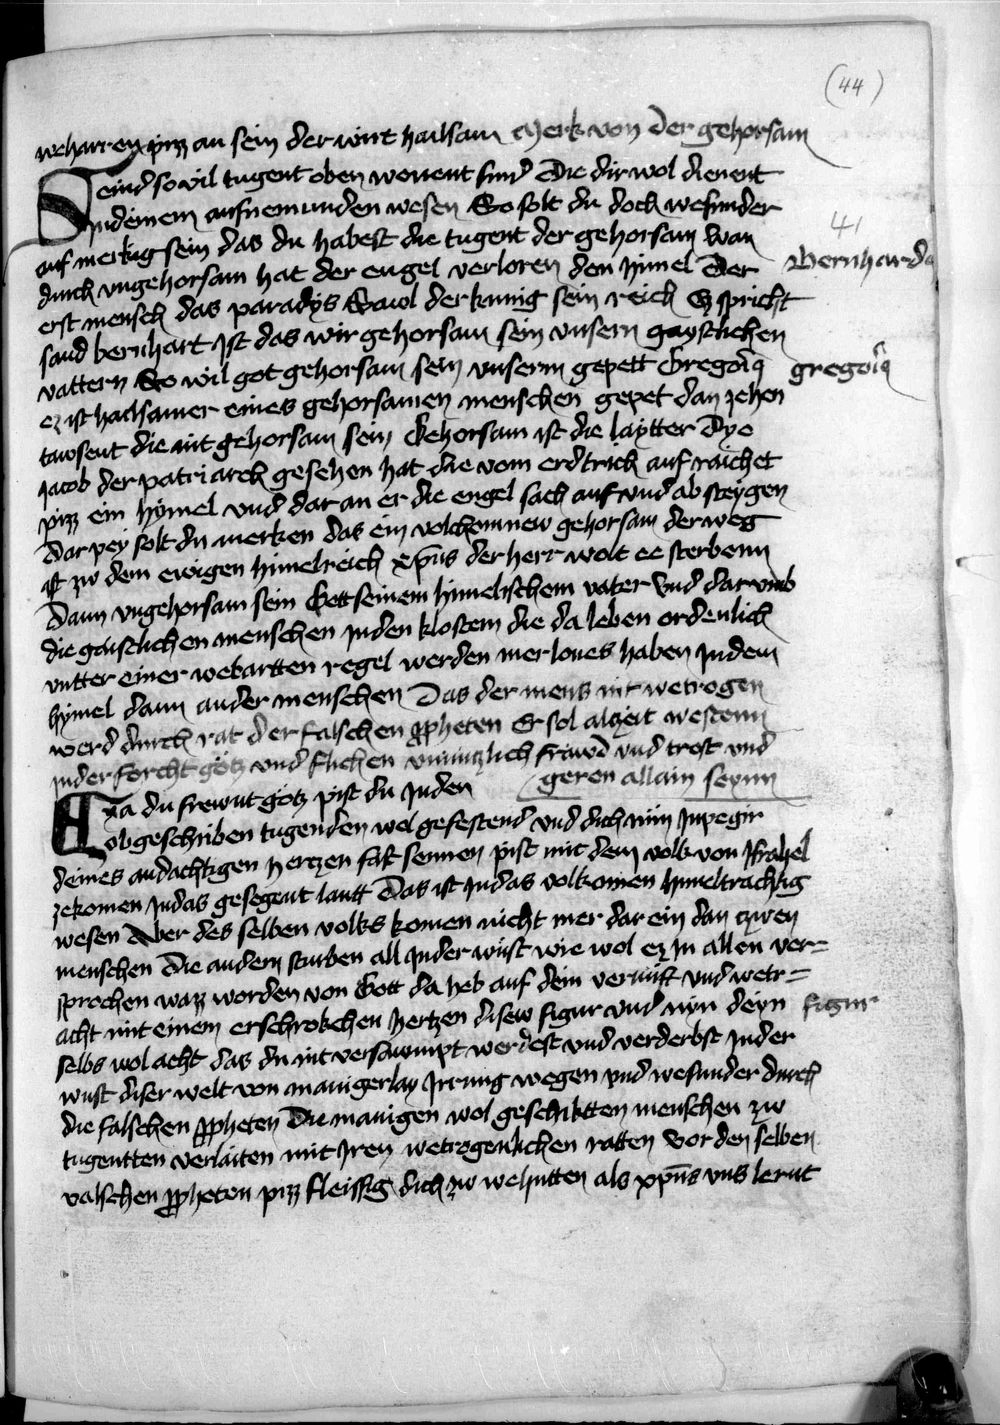 (44)
weharren pizz an sein der wirt hailsam Merk von der gehorsam
Seind so vil tugent oben wenent sind die dir wol dienent
Jn deinem aufnemunden wesen So solt du doch wesunder
41
auf merkig sein das du habest die tugent der gehorsam wan
durch vngehorsam hat der engel verloren den himel Der
Bernhard
erst mensch das paradys Sawl der kunig sein reich Es spricht
sand bernhart Jst das wir gehorsam sein vnsern gaystlichen
vattern So wil got gehorsam sein vnserm gepett Gregorius
gregorius
ez ist hailsamer eines gehorsamen menschen gepet dan zehen
tawsent die nit gehorsam sein Gehorsam ist die laytter Dye
Jacob der patriarch gesehen hat die vom erdtrich auf raichet
pizz ein hymel vnd dar an er die engel sach auf vnd ab steygen
Dar pey solt du merken das ein volchemnew gehorsam der weg
ist zw dem ewigen himelreich xpus der herr wolt ee sterbenn
Dann vngehorsam sein Gott seinem himelischem vater Vnd darumb
die gaistlichen menschen Jn den klostern die da leben ordenlich
vntter einer webartten regel werden mer lones haben Jn dem
hymel dann ander menschen Das der mens nit wetrogen
werd durch rat der falschen propheten Er sol alzeit westenn
Jn der forcht gotz vnd fliehen vnnutzlich frawd vnd trost vnd
geren allain seynn
Eya du frewnt gotz pist du Jn den
obgeschriben tugenden wol gefestend vnd dich nun Jn pegir
deines andachtigen hertzen fast sennen pist mit dem volk von Jsrahel
zekomen Jn das gesegent lantt Das ist Jn das volkomen himeltrachtig
wesen Aber des selben volks komen nicht mer dar ein dan zwen
menschen Die andern sturben all Jn der wüst wie wol ez Jn allen ver=
sprochen wazz worden von Gott da heb auf dein vernuft vnd wetr=
acht mit einem erschrokchen hertzen disew figur vnd nym deyn
figur
selbs wol acht das du nit versawmpt werdest vnd verderbst Jn der
wust diser welt von manigerlay Jrrung wegen vnd wesunder durch
die falschen propheten Die manigen wol geschikten menschen zw
tugentten verlaiten mit Jren wetrogenlichen ratten Vor den selben
valschen propheten pizz fleissig dich zw wehutten als xpus vns lernt